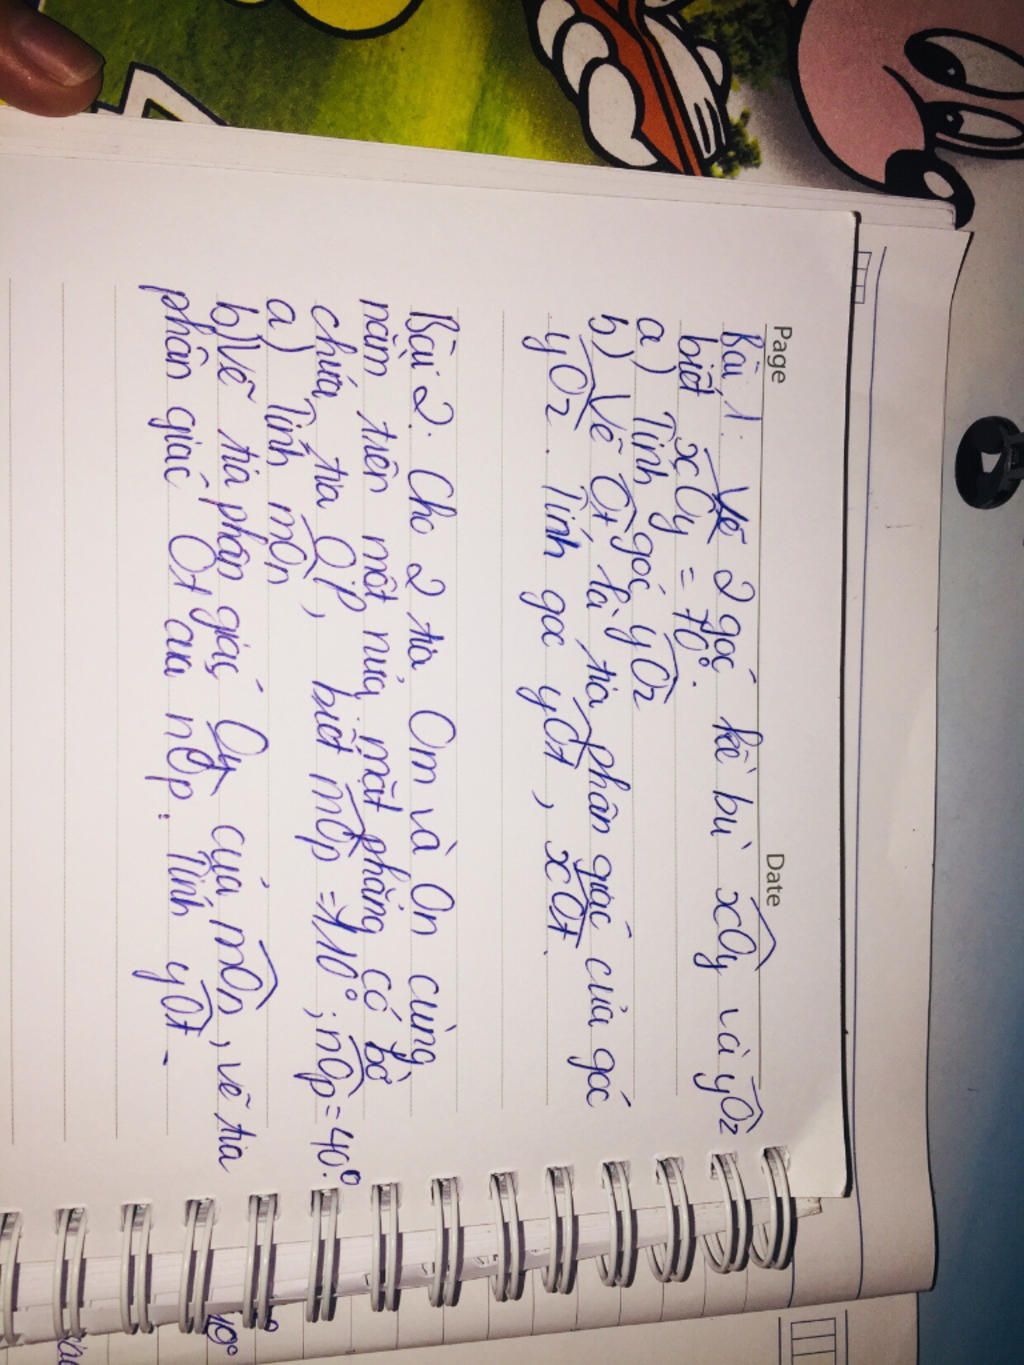 Page Date
Bài 1: Vẽ 2 góc kề bù xOy và yOz
biết xOy = 70°.
a) Tính góc yOz
b) Vẽ Ot là tia phân giác của góc
yOz. Tính góc yOt, xOt.
Bài 2: Cho 2 tia Om và On cùng
nằm trên một nửa mặt phẳng có bờ
chứa tia OP, biết mOp = 110°; nOp = 40°.
a) Tính mOn
b) Vẽ tia phân giác Oy của mOn, vẽ tia
phân giác Ot của nOp. Tính yOt.
10°